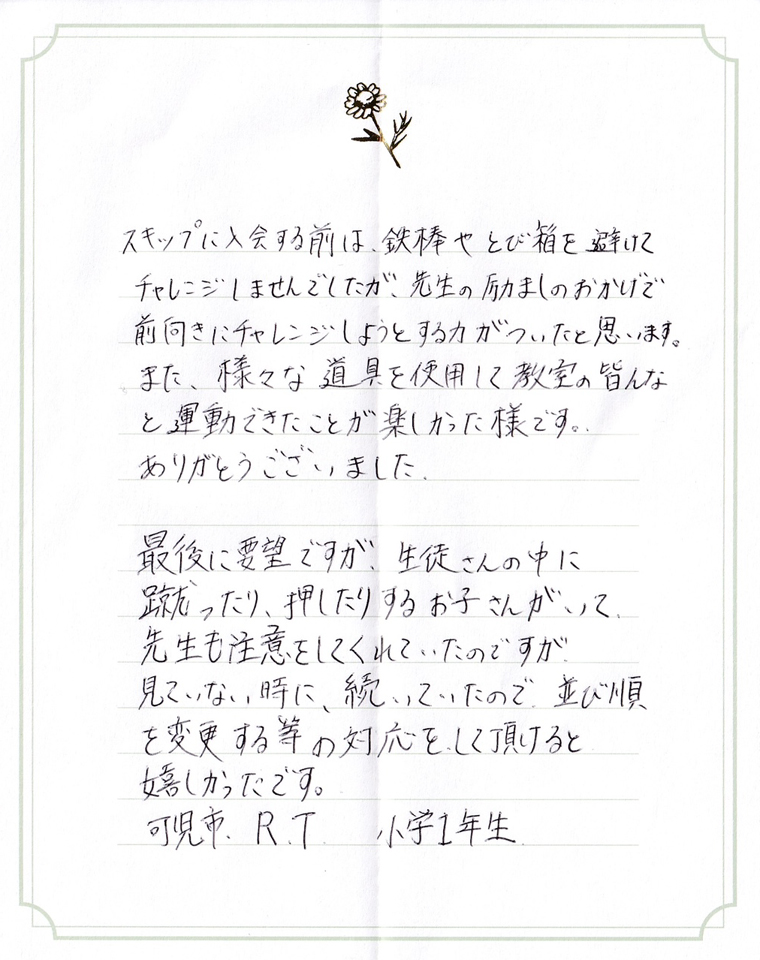 スキップに入会する前は、鉄棒やとび箱を避けて
チャレンジしませんでしたが、先生の励ましのおかげで
前向きにチャレンジしようとする力がついたと思います。
また、様々な道具を使用して教室の皆んな
と運動できたことが楽しかった様です。
ありがとうございました。
最後に要望ですが、生徒さんの中に
蹴ったり、押したりするお子さんがいて、
先生も注意をしてくれていたのですが、
見ていない時に、続いていたので、並び順
を変更する等の対応をして頂けると
嬉しかったです。
可児市. R.T. 小学1年生